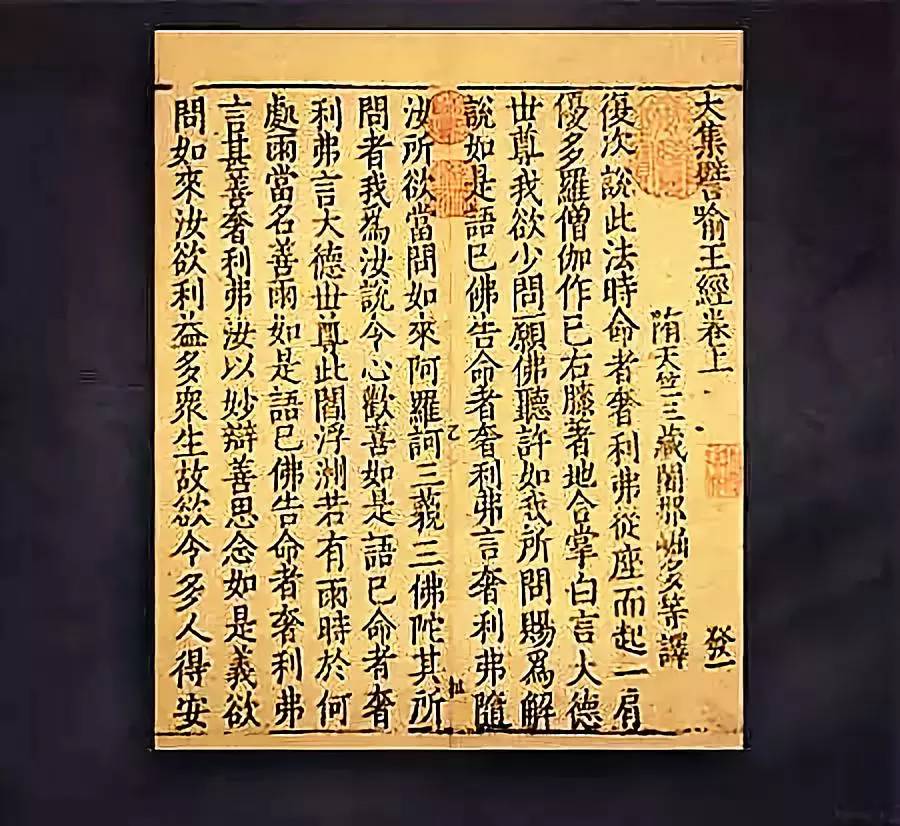 大集譬喻王經卷上
發一
隋天竺三藏闍那崛多等譯
復次說此法時命者奢利弗從座而起一肩
優多羅僧伽作已右膝著地合掌白言大德
世尊我欲少問願佛聽許如我所問賜為解
說如是語已佛告命者奢利弗言奢利弗隨
汝所欲當問如來阿羅訶三藐三佛陀其所
問者我為汝說令心歡喜如是語已命者奢
利弗言大德世尊此閻浮洲若有雨時於何
處雨當名善雨如是語已佛告命者奢利弗
言甚善奢利弗汝以妙辯善思念如是義欲
問如來汝欲利益多衆生故欲令多人得安